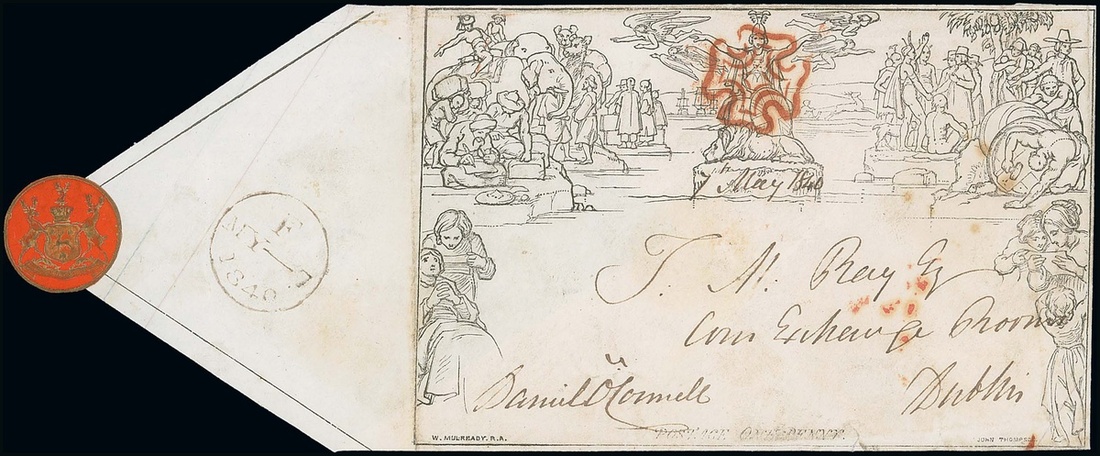 F
MY 7
1840
7 May 1840
T. M. Ray Esq
Corn Exchange Rooms
Dublin
Daniel O'Connell
POSTAGE ONE PENNY.
W. MULREADY. R.A.
JOHN THOMPSON